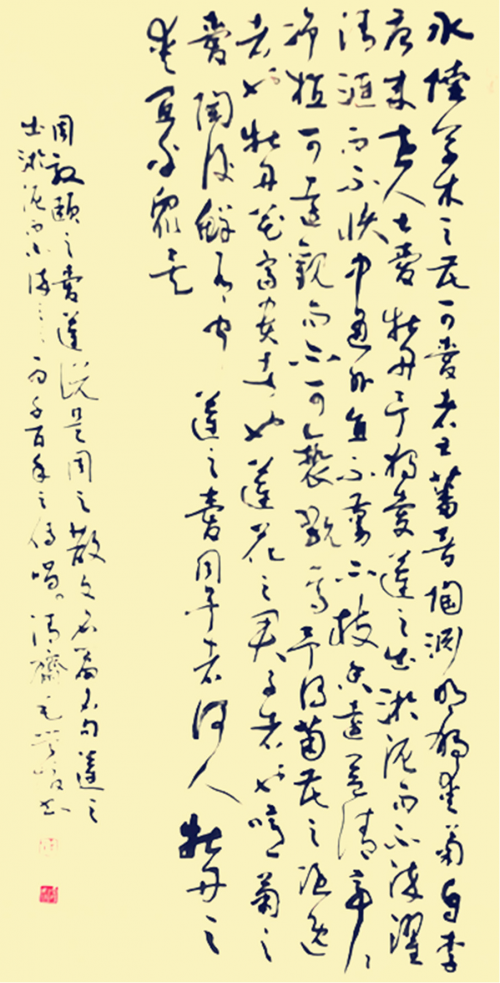 水陸草木之花可愛者甚蕃晋陶渊明獨愛菊自李
唐来世人甚愛牡丹予獨愛蓮之出淤泥而不染濯
清漣而不妖中通外直不蔓不枝香遠益清亭亭
净植可遠觀而不可褻玩焉予谓菊花之隐逸
者也牡丹花富贵者也蓮花之君子者也噫菊之
愛陶後鲜有闻蓮之愛同予者何人牡丹之
愛宜乎眾矣
周敦颐之愛蓮说是周之散文名篇名句蓮之
出淤泥而不染 千百年之传唱。清齋 书